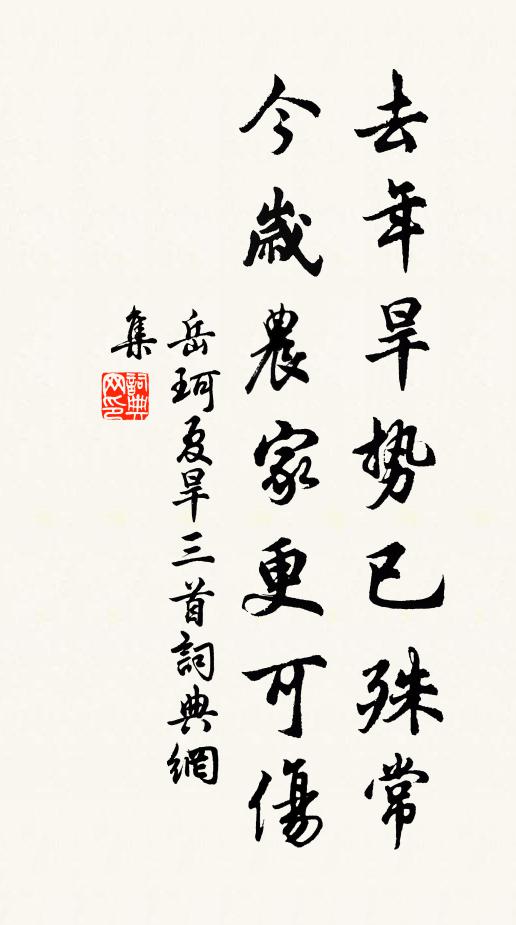 去年旱势已殊常
今歲農家更可傷
岳珂夏旱三首詞典網
集
詞典
网印